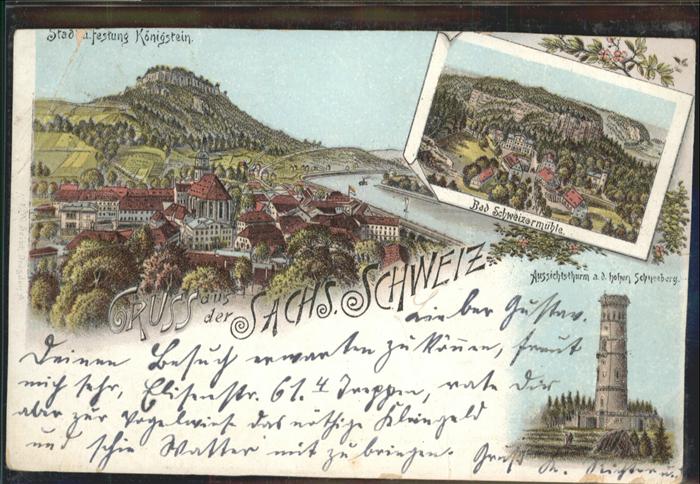 Stadt u. Festung Königstein.
Bad Schweizermühle.
Aussichtsthurm a. d. hohen Schneeberg.
GRUSS aus der SÄCHS. SCHWEIZ.
Lieber Gustav.
Deinen Besuch erwarten zu können, freut
mich sehr, Elisenstr. 61. 4 Treppen, rate dir
aber zur Vogelwiese das nöthige Kleingeld
und schön Wetter mit zu bringen. Gruß